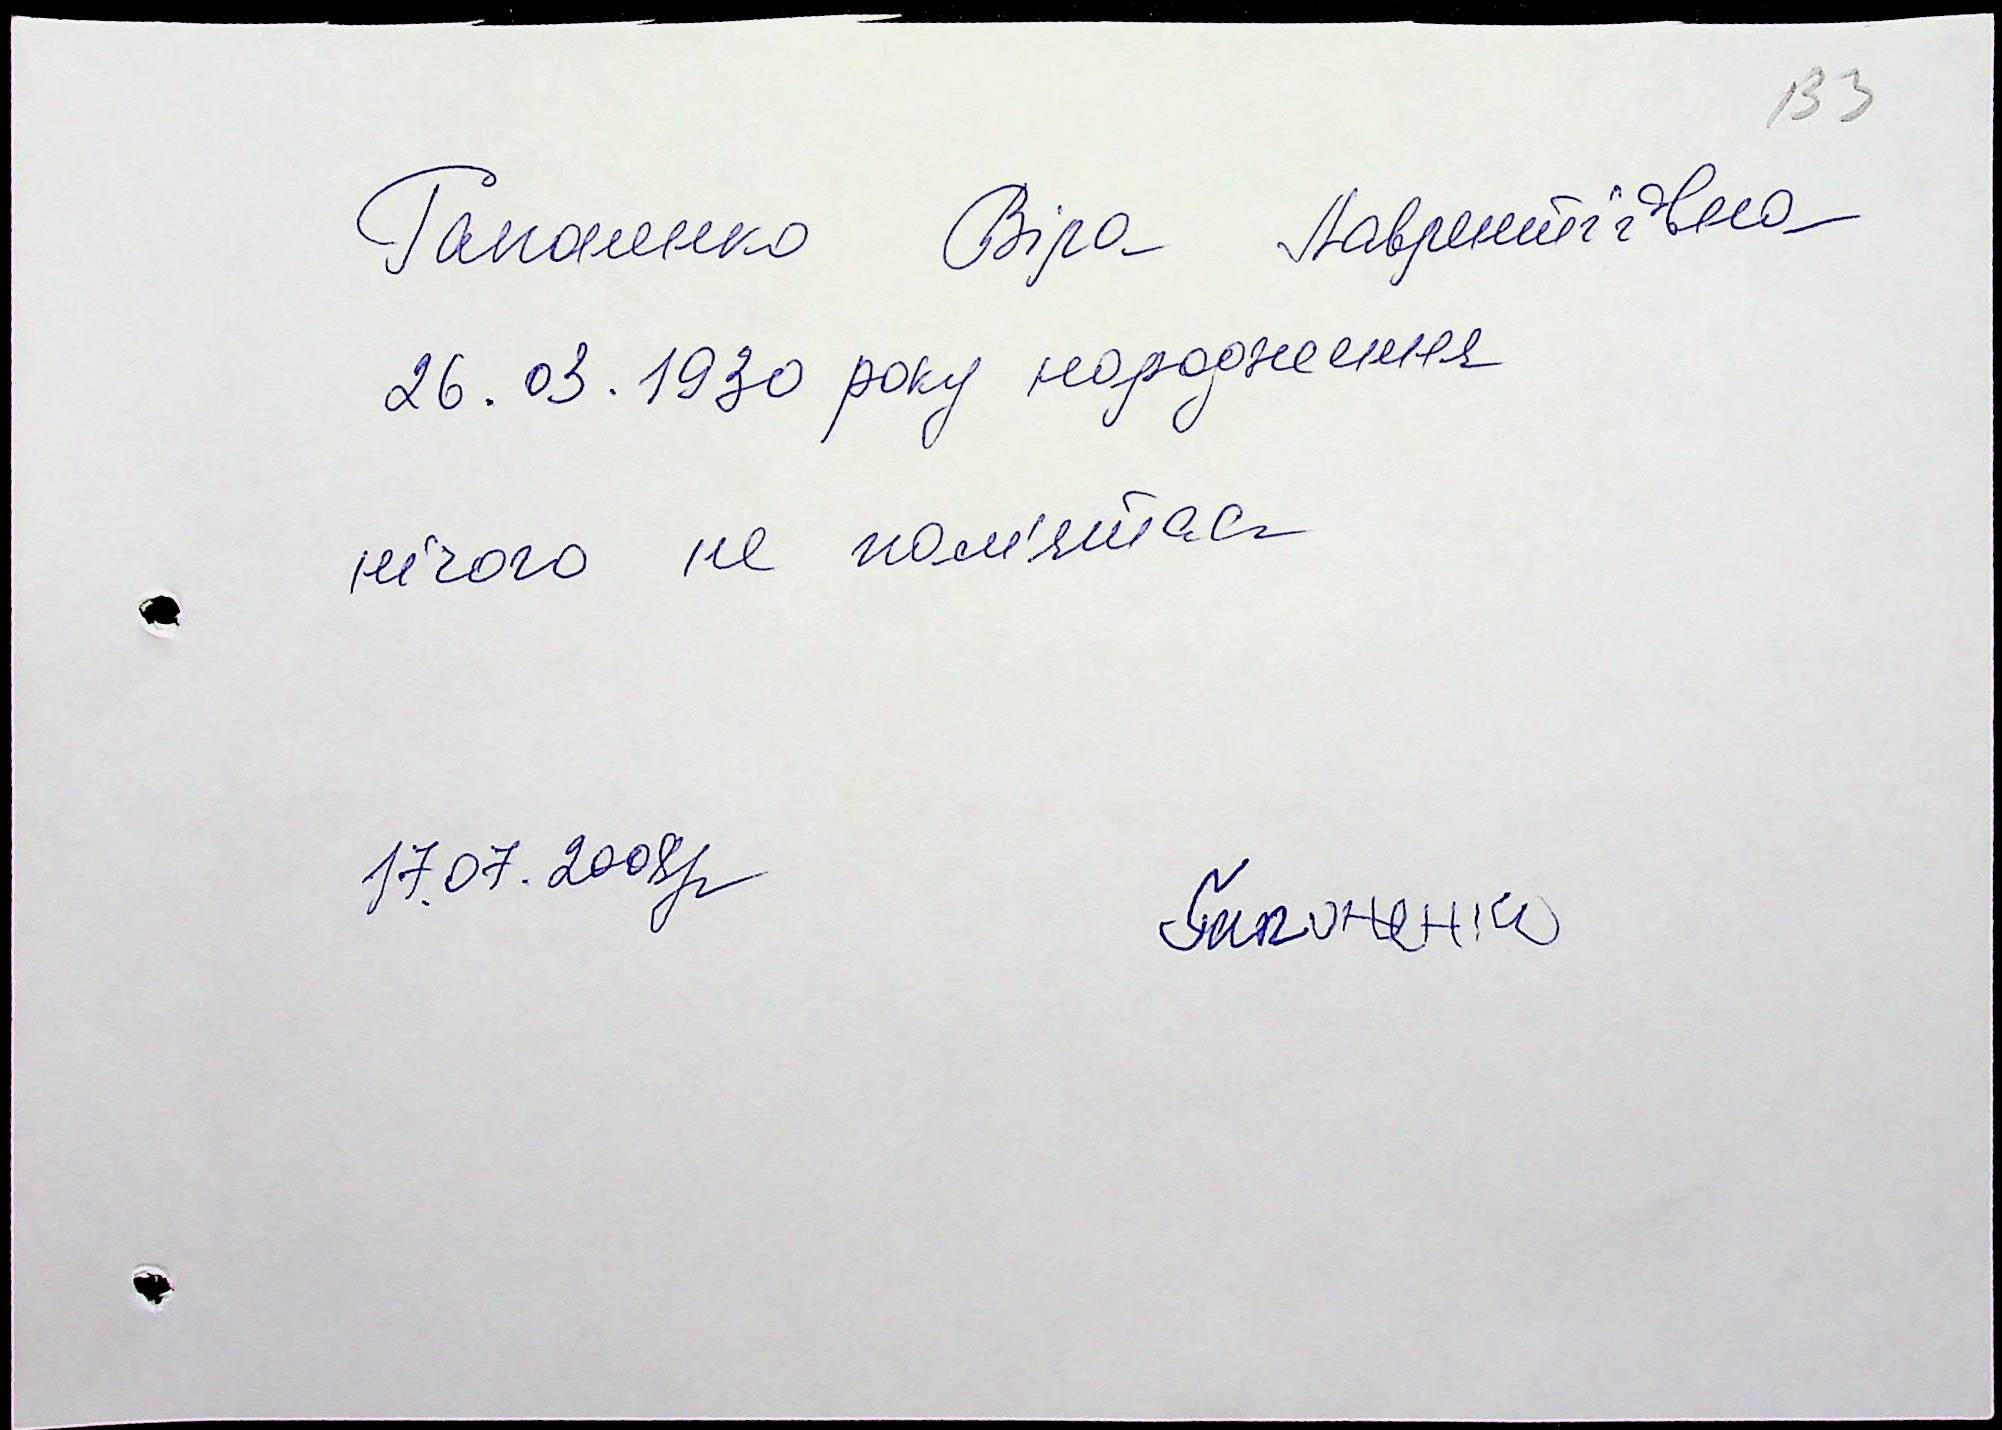 133
Гапоненко Віра Лаврентіївна
26.03.1930 року народження
нічого не пам'ятає
17.07.2008р Гапоненко